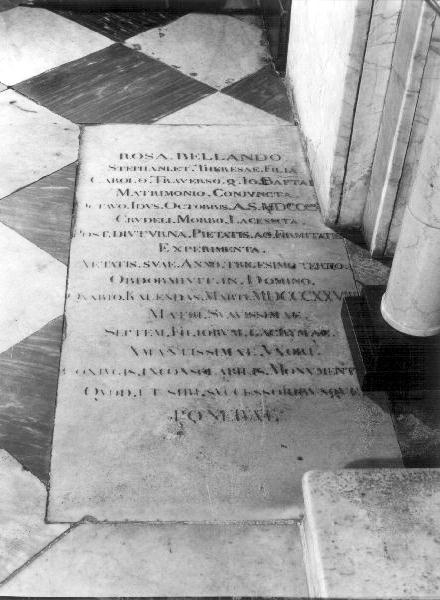 ROSA.BELLANDO
STEPHANI.ET.THERESAE.FILIA
CAROLO.TRAVERSO.Q.IO.BAPTAE
MATRIMONIO.CONIVNCTA
OCTAVO.IDVS.OCTOBRIS.A.S.
CRVDELI.MORBO.LACESSITA.
POST.DIVTVRNA.PIETATIS.AC.FIRMITATIS
EXPERIMENTA.
AETATIS.SVAE.ANNO.TRIGESIMO.TERTIO.
OBDORMIVIT.IN.DOMINO.
QVARTO.KALENDAS.MARTII.
MATRI.SVAVISSIMAE.
SEPTEM.FILIORVM.LACRYMAE.
AMANTISSIMAE.VXORI.
CONIVGIS.INCONSOLABILIS.MONVMENT
QVOD.ET.SIBI.SVCCESSORIBVSQVE
PONEBAT.